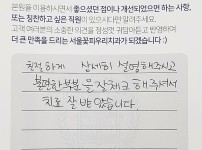 본원을 이용하시면서 좋으셨던 점이나 개선되었으면 하는 사항,
또는 칭찬하고 싶은 직원이 있으시다면 말려주세요.
고객 여러분의 소중한 의견을 정성껏 귀담아듣고 반영하여
더 큰 만족을 드리는 서울꽃피우리치과가 되겠습니다 :)
친절하게 상세히 설명해주시고
불편한 부분을 잘 체크 해주셔서
치료 잘 받았습니다.